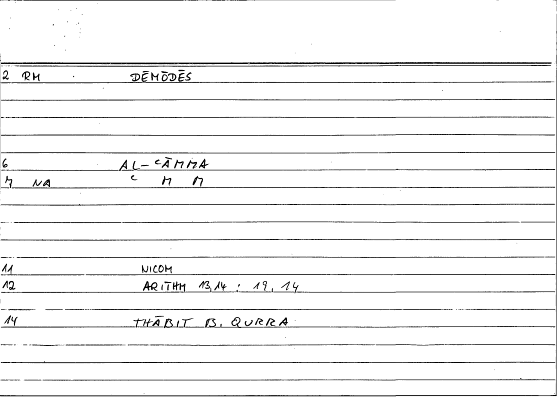 2 RM DĒMŌDĒS
6 AL-ʿĀMMA
M NA ʿ M M
11 NICOM
12 ARITHM 13,14 : 19,14
14 THĀBIT B. QURRA